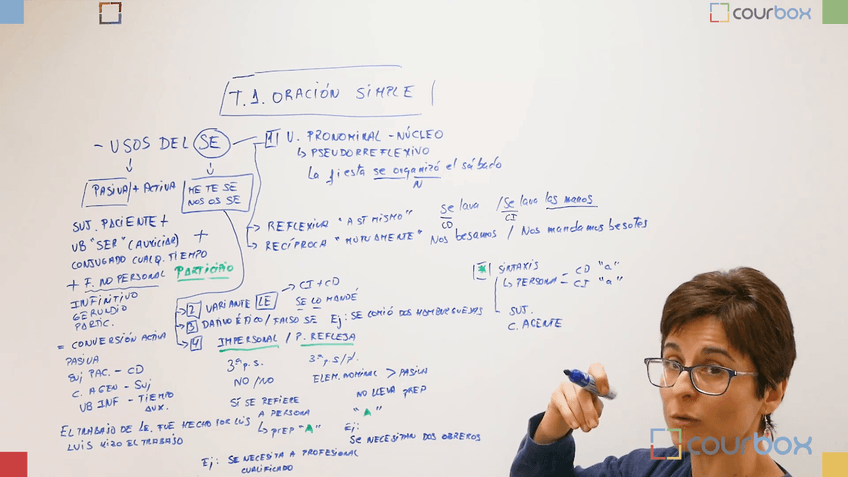 courbox
T.1. ORACIÓN SIMPLE
- USOS DEL SE
PASIVA + ACTIVA
ME TE SE
NOS OS SE
SUJ. PACIENTE +
VB "SER" (AUXILIAR) +
CONJUGADO CUALQ. TIEMPO
+ F. NO PERSONAL PARTICIPIO
INFINITIVO
GERUNDIO
PARTIC.
= CONVERSIÓN ACTIVA
PASIVA
SUJ PAC. - CD
C. AGEN - SUJ
VB INF - TIEMPO
AUX.
EL TRABAJO DE LE. FUE HECHO POR LUIS
LUIS HIZO EL TRABAJO
1 V. PRONOMINAL - NÚCLEO
↳ PSEUDORREFLEXIVO
La fiesta se organizó el sábado
N
REFLEXIVA "A SÍ MISMO" Se lava / Se lava las manos
CD CI
RECÍPROCA "MUTUAMENTE" Nos besamos / Nos mandamos besotes
2 VARIANTE LE → CI + CD
SE LO MANDÉ
3 DATIVO ÉTICO / FALSO SE Ej: SE COMIÓ DOS HAMBURGUESAS
4 IMPERSONAL / P. REFLEJA
3ª p.s. 3ª p.s/pl.
NO / NO ELEM. NOMINAL > PASIVA
SÍ SE REFIERE NO LLEVA PREP
A PERSONA "A"
↳ PREP "A" Ej:
SE NECESITAN DOS OBREROS
Ej: SE NECESITA A PROFESIONAL
CUALIFICADO
* SINTAXIS
↳ PERSONA - CD "a"
- CI "a"
SUJ.
C. AGENTE
courbox